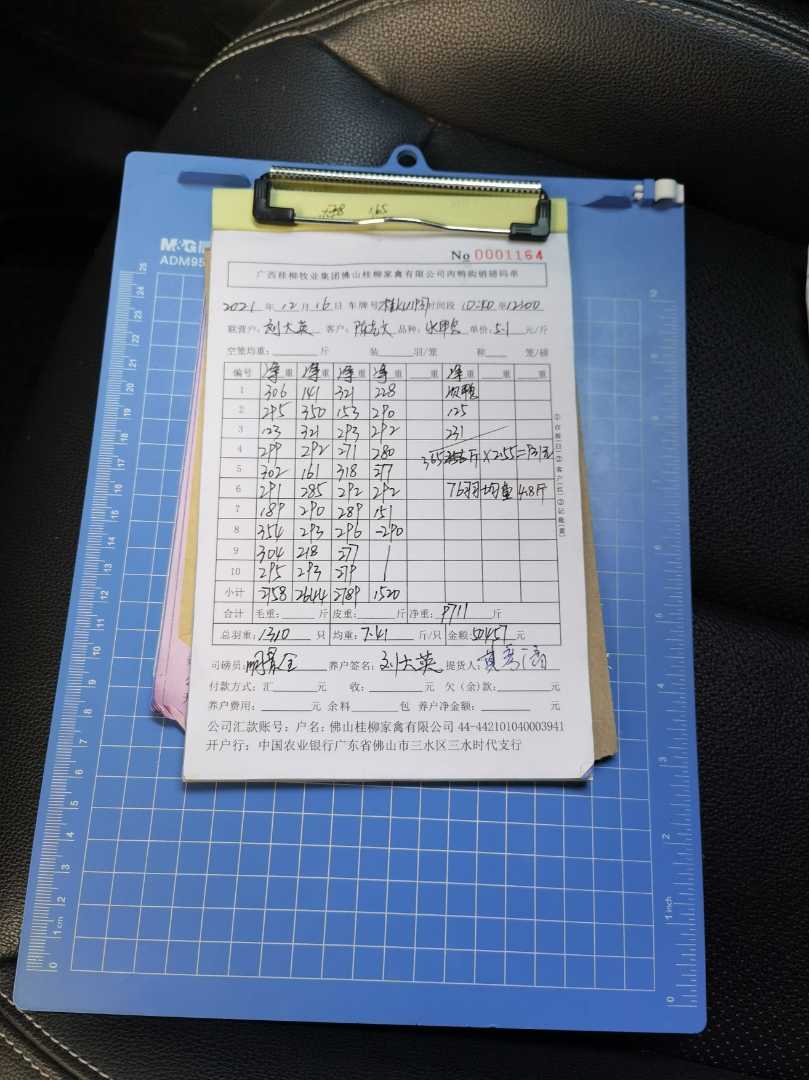 M&G
ADM95
No 0001164
广西桂柳牧业集团佛山桂柳家禽有限公司肉鸭购销磅码单
2021 年 12 月 16 日 车牌号 时间段 10:40 至 12:00
联营户: 刘大英 客户: 品种: 单价: 5.1 元/斤
空笼均重: 斤 装 羽/笼 称 笼/磅
编号 净重 净重 净重 净重 重 净重 重 重
1 306 141 321 228
2 295 350 153 290 125
3 123 321 293 292 231
4 299 292 271 280 斤×2.55=931元
5 302 161 318 277
6 291 285 292 292 76羽 均重 4.8斤
7 189 290 289 151
8 354 293 296 -290
9 304 218 277
10 295 293 279
小计 2758 2644 2789 1520
合计 毛重: 斤 皮重: 斤 净重: 9711 斤
总羽重: 1310 只 均重: 7.41 斤/只 金额: 50457 元
司磅员: 养户签名: 刘大英 提货人:
付款方式: 汇 元 收: 元 欠(余)款: 元
养户费用: 元 余料 包 养户净金额: 元
公司汇款账号: 户名: 佛山桂柳家禽有限公司 44-442101040003941
开户行: 中国农业银行广东省佛山市三水区三水时代支行